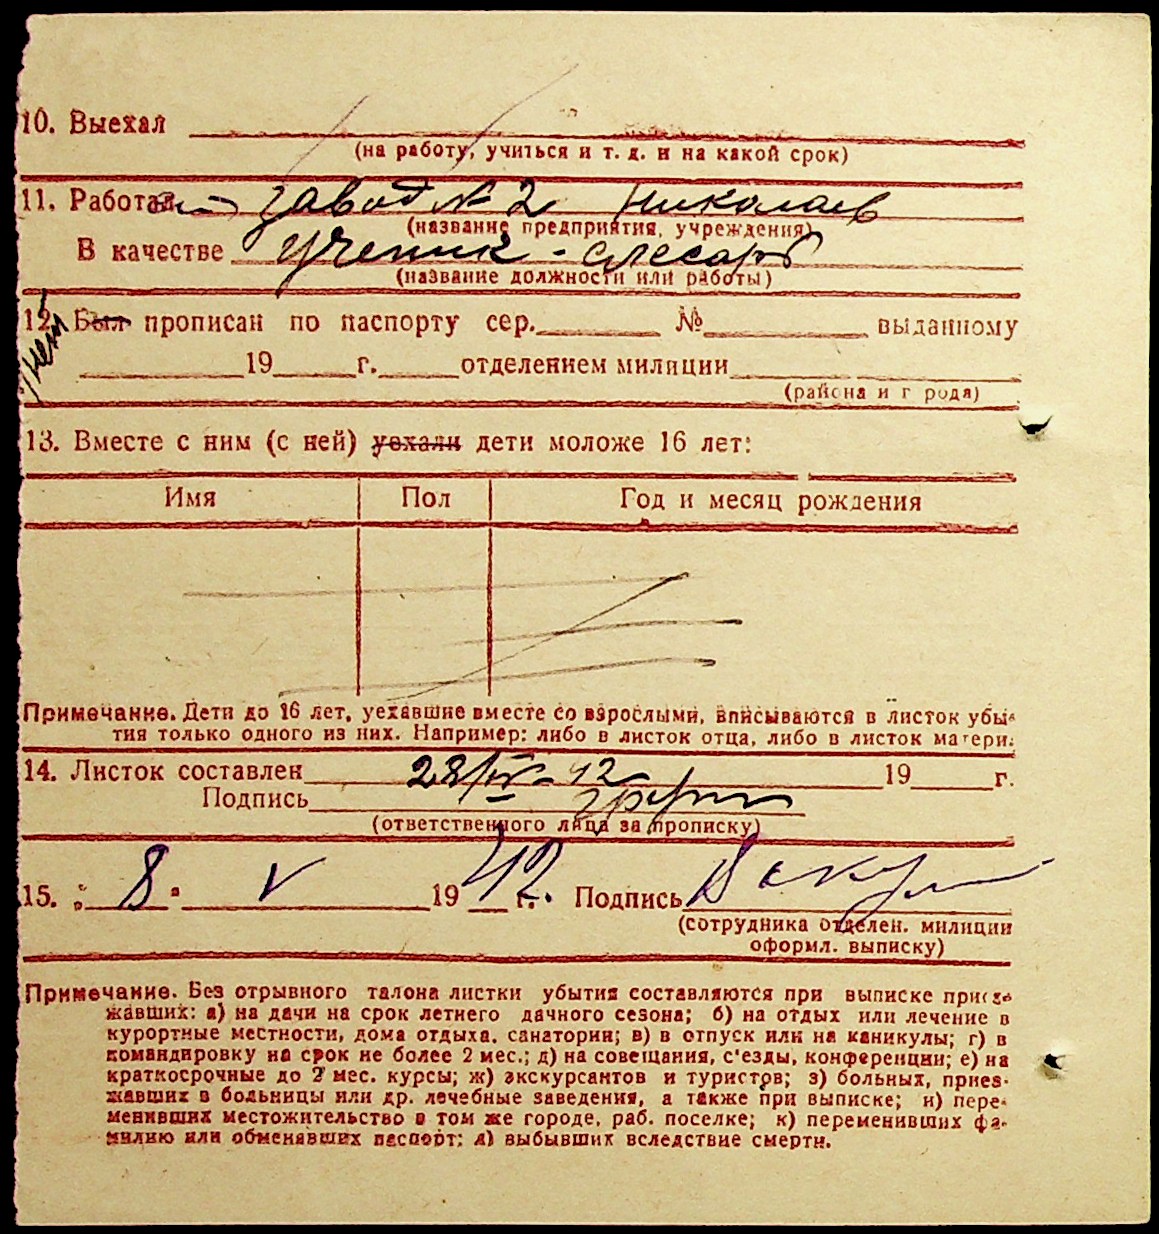 10. Выехал
(на работу, учиться и т. д. и на какой срок)
11. Работал завод № 2 Николаев
(название предприятия, учреждения)
В качестве ученик - слесаря
(название должности или работы)
12. Был прописан по паспорту сер. № выданному
нет
19 г. отделением милиции
(района и г рода)
13. Вместе с ним (с ней) уехали дети моложе 16 лет:
Имя Пол Год и месяц рождения
Примечание. Дети до 16 лет, уехавшие вместе со взрослыми, вписываются в листок убы-
тия только одного из них. Например: либо в листок отца, либо в листок матери.
14. Листок составлен 28/IV-42 19 г.
Подпись
(ответственного лица за прописку)
15. „8" V 1942 г. Подпись
(сотрудника отделен. милиции
оформл. выписку)
Примечание. Без отрывного талона листки убытия составляются при выписке приез-
жавших: а) на дачи на срок летнего дачного сезона; б) на отдых или лечение в
курортные местности, дома отдыха, санатории; в) в отпуск или на каникулы; г) в
командировку на срок не более 2 мес.; д) на совещания, с'езды, конференции; е) на
краткосрочные до 2 мес. курсы; ж) экскурсантов и туристов; з) больных, приез-
жавших в больницы или др. лечебные заведения, а также при выписке; и) пере-
менивших местожительство в том же городе, раб. поселке; к) переменивших фа-
милию или обменявших паспорт; л) выбывших вследствие смерти.